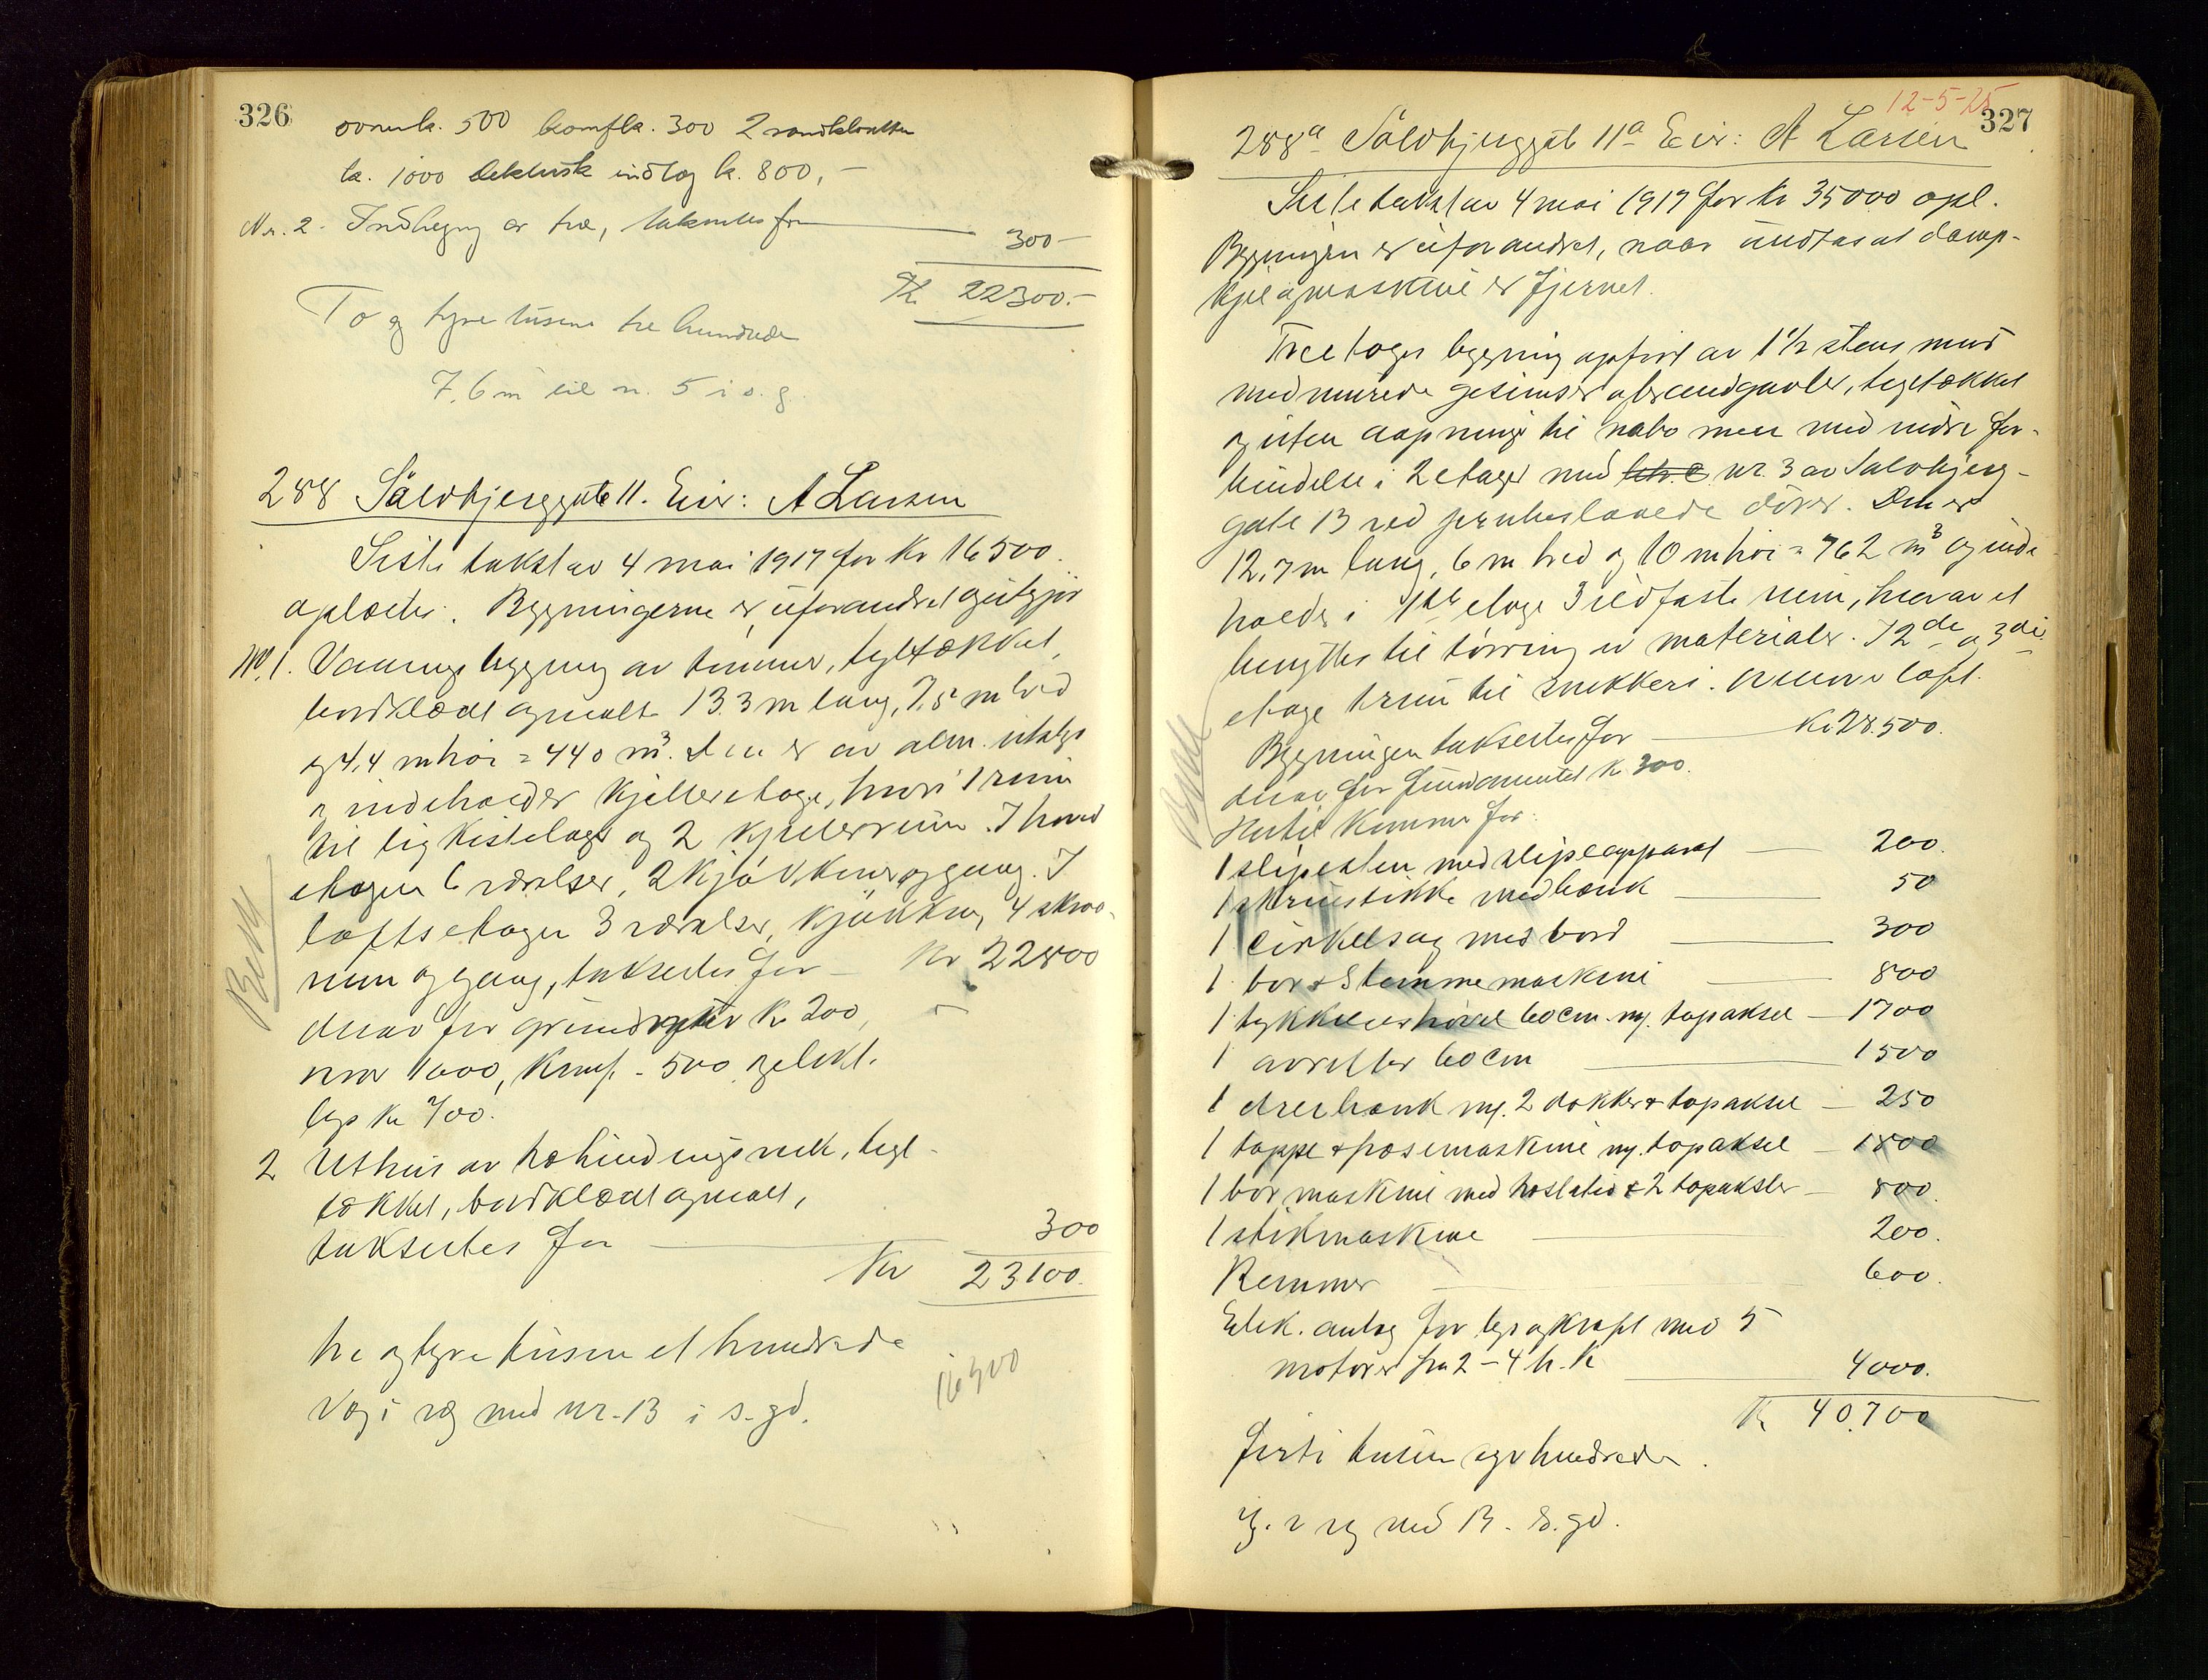 326
ovner k. 500 komf k. 300 2 vandklosetter
k. 1000 elektrisk indlag k. 800,-
Nr. 2. Indhegng av træ, taksertes for 300-
K. 22300.-
To og tyve tusen tre hundrede
7,6 m til n. 5 i s. g.
288 Sølvbjerggate 11. Eier: A Larsen
Siste takst av 4 mai 1917 for Kr 16500.
oplæstes. Bygningerne er uforandret og utgjør
No. 1. Vaaningsbygning av tømmer, tegltækket,
bordklædt og malt 13.3 m lang, 7,5 m bred
og 4,4 m høi = 440 m³. Den er av alm. utstyr
og indeholder Kjelleretage, hvori 1 rum
til ligkistelager og 2 kjelderrum. I hoved
etagen 6 værelser, 2 kjøkkener og gang. I
loftsetagen 3 værelser, kjøkken, 4 skraa-
rum og gang, taksertes for - Kr 22800
derav for grundmur Kr 200,
ovner 1000, Komf. - 500 og elekt.
lys Kr 700.
2 Uthus av træbindingsverk, tegl-
tækket, bordklædt og malt,
taksertes for 300
Kr 23100.
tre og tyve tusen et hundrede
Væg i væg med nr. 13 i s. gd.
16300
Besk
12-5-25
327
288a Sølvbjerggate 11a Eier: A Larsen
Siste takst av 4 mai 1917 for Kr 35000 opl.
Bygningen er uforandret, naar undtas at damp-
kjel og maskine er fjernet.
Tre etages bygning opført av 1 1/2 stens mur
med murede gesimser og brandgavler, tegltækket
og uten aapninger til nabo men med indre for-
bindelse i 2 etager med litr. C nr. 3 av Sølvbjerg-
gate 13 ved jernbeslaaede dører. Den er
12,7 m lang, 6 m bred og 10 m høi = 762 m³ og inde-
holder i 1ste etage 3 ildfaste rum, hvorav et
benyttes til tørring av materialer. I 2de og 3die
etage 1 rum til snekkeri. Øverst loft.
Bygningen taksertes for Kr 28.500.
derav for fundamentet Kr. 300.
Hertil kommer for:
1 slipesten med slipeapparat 200.
1 skruestikke med bænk 50
1 cirkelsag med bord 300
1 bor & Stemmemaskine 800
1 tykkelseshøvel 60 cm. m/. topaksel - 1700
1 avretter 60 cm 1500
1 dreiebænk m/. 2 dokker & topaksel - 250
1 tappe & fræsemaskine m/. topaksel - 1800
1 bor maskine med & 2 topaksler - 800.
1 stikmaskine 200.
Remmer 600.
Elek. anlæg for lys og kraft med 5
motorer fra 2-4 h.k 4000.
K 40,700
Førti tusen syv hundrede.
V. i væg med 13. s. gd.
Besk